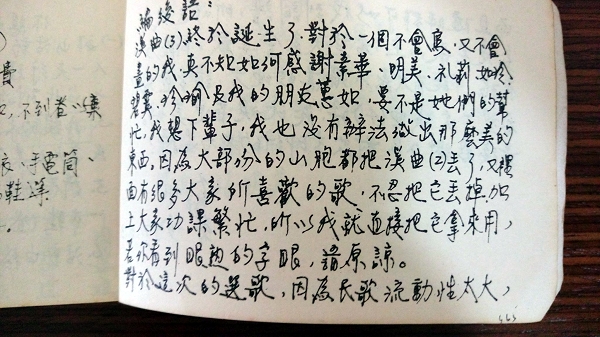 編後語：
溪曲(3)終於誕生了，對於一個不會寫，又不會
畫的我，真不知如何感謝素華、明美、礼莉、如玲、
碧雲、玲瑜及我的朋友蕙如，要不是她們的幫
忙，我想下輩子，我也沒有辦法做出那麼美的
東西，因為大部份的山胞都把溪曲(2)丟了，又裡
面有很多大家所喜歡的歌，不忍把它丟掉，加
上大家功課繁忙，所以我就直接把它拿來用，
若你看到眼熟的字眼，請原諒。
對於這次的選歌，因為民歌流動性太大，
費
不到
手電筒、
鞋